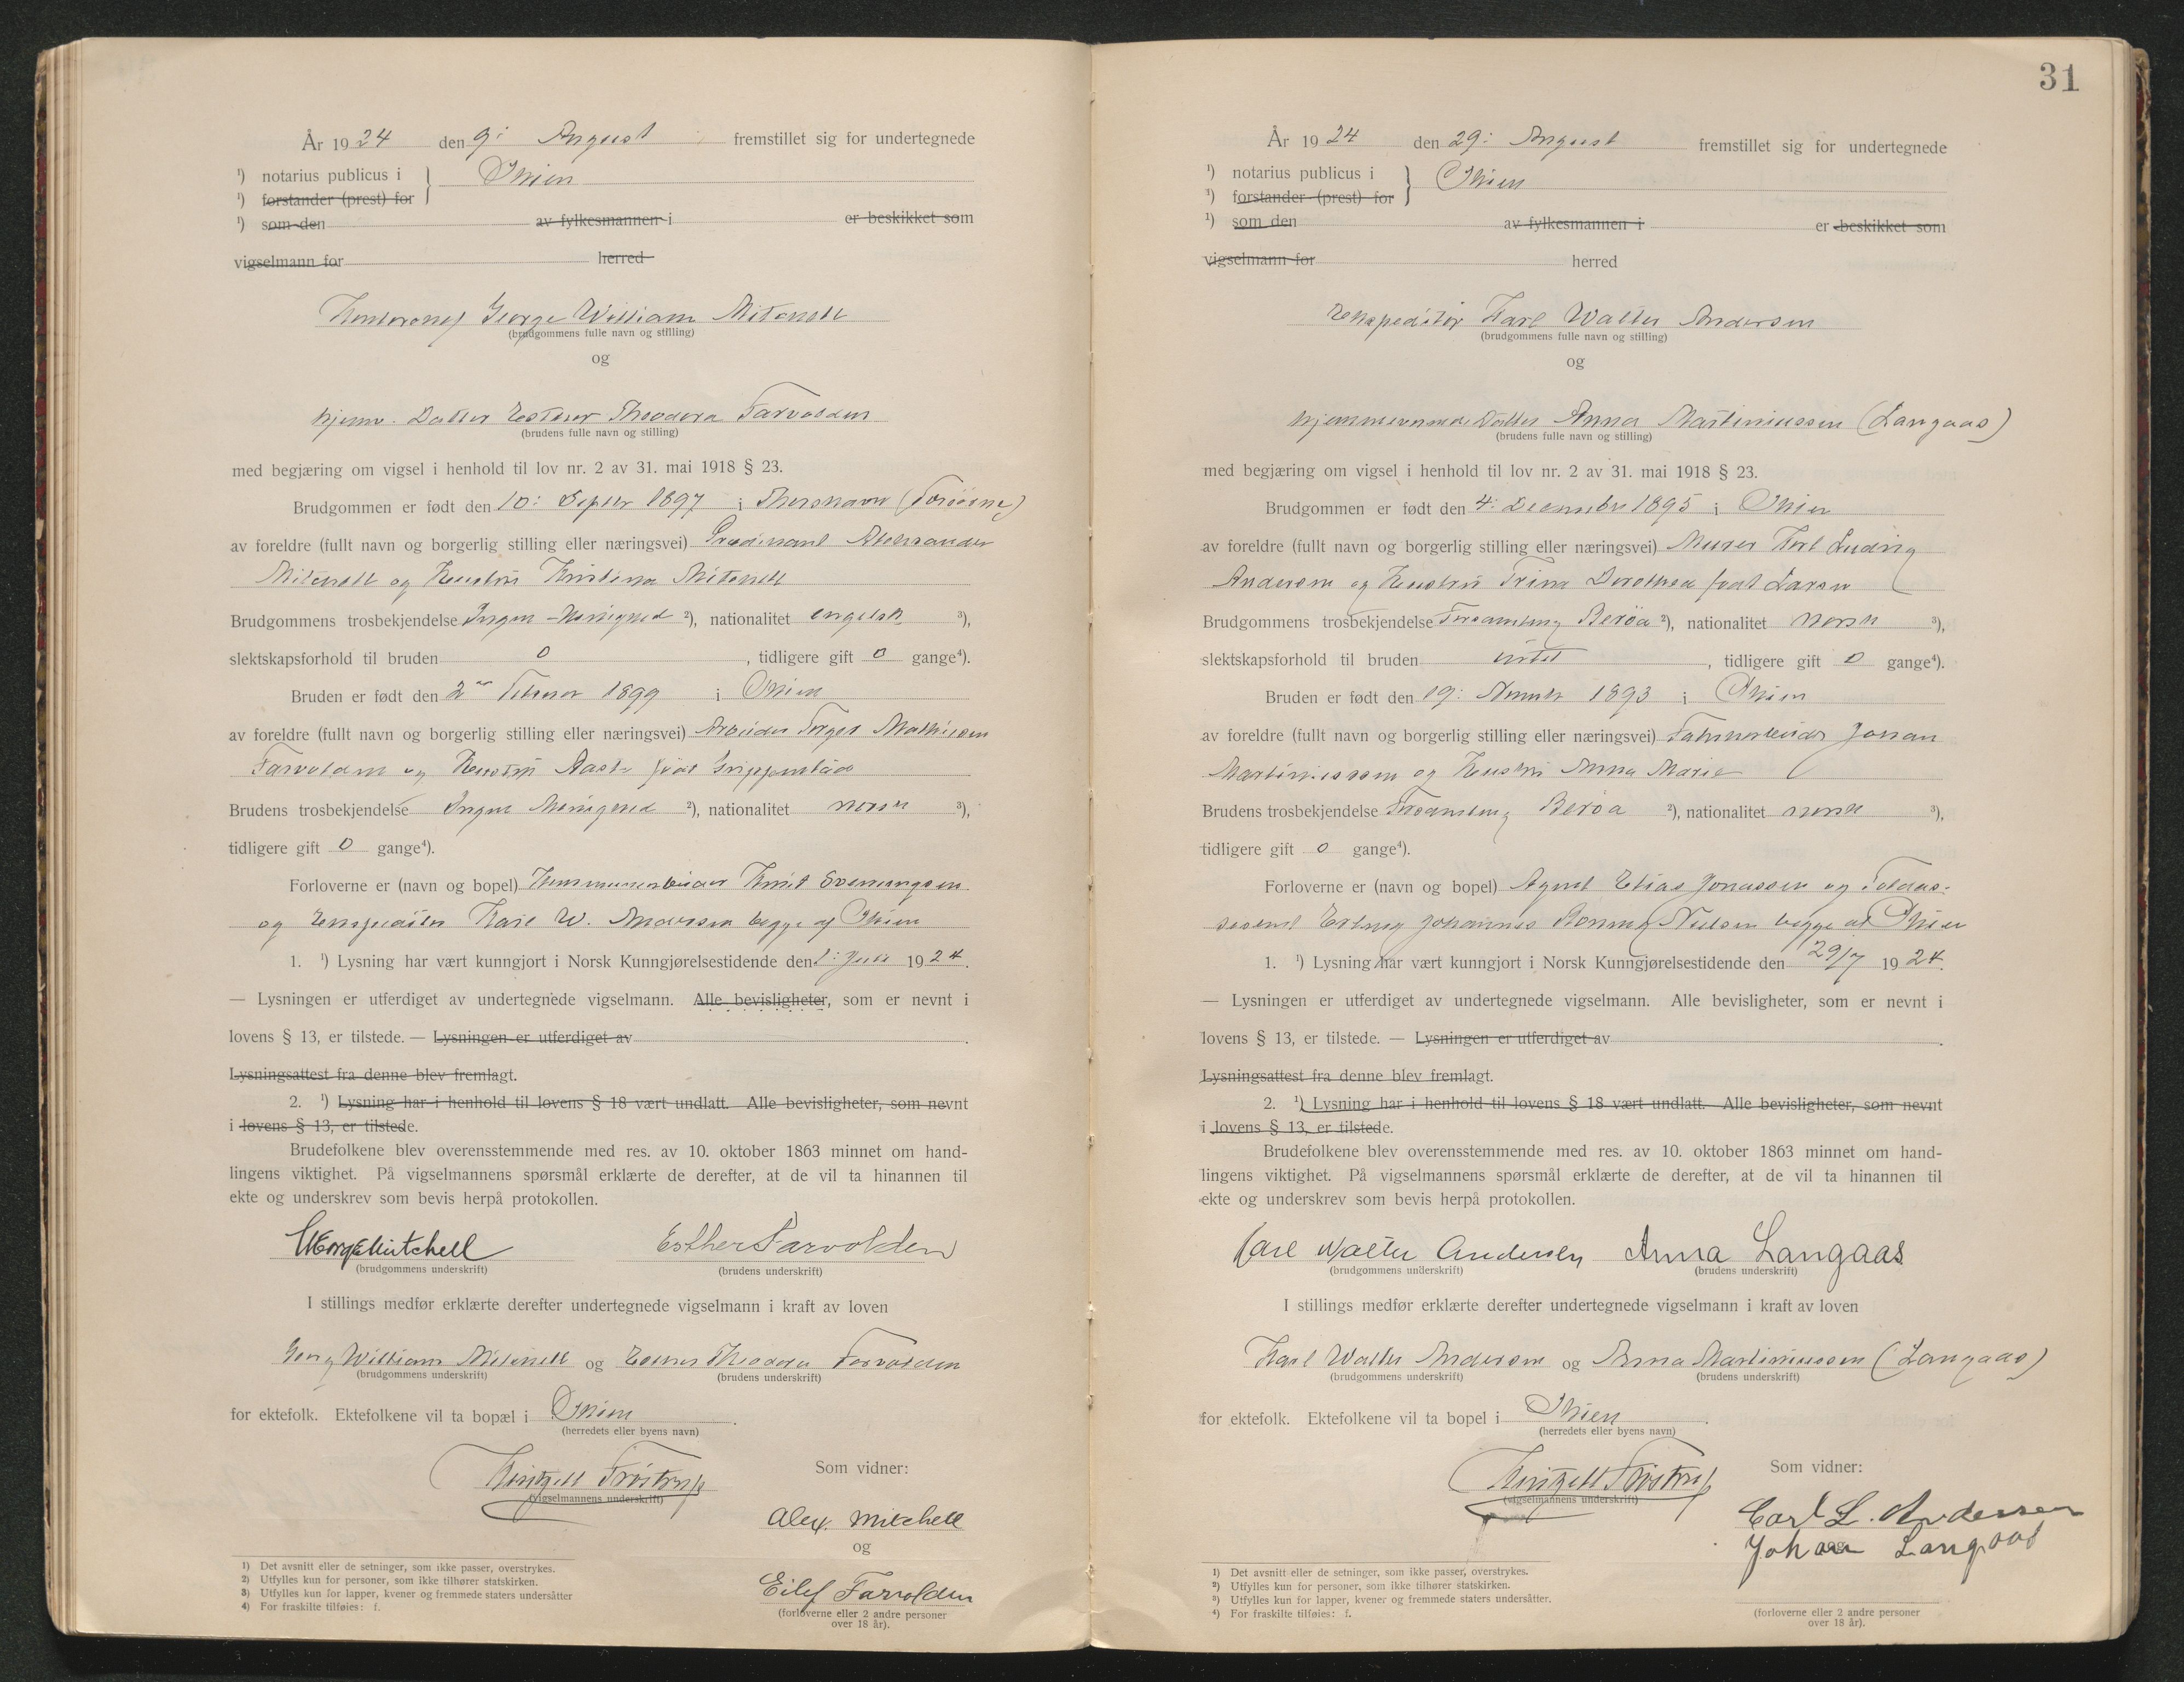 År 1924 den 9: August fremstillet sig for undertegnede
¹) notarius publicus i } Skien
¹) forstander (prest) for
¹) som den av fylkesmannen i er beskikket som
vigselmann for herred
George William Mitchell
(brudgommens fulle navn og stilling)
og
hjemv. Datter Esther Theodora Farvolden
(brudens fulle navn og stilling)
med begjæring om vigsel i henhold til lov nr. 2 av 31. mai 1918 § 23.
Brudgommen er født den 10: Septbr 1897 i Thorshavn (Færøerne)
av foreldre (fullt navn og borgerlig stilling eller næringsvei) Predikant Aleksander
Mitchell og Hustru Kristina Mitchell
Brudgommens trosbekjendelse Ingen Menighed ²), nationalitet engelsk ³),
slektskapsforhold til bruden 0, tidligere gift 0 gange⁴).
Bruden er født den 2den Februar 1899 i Skien
av foreldre (fullt navn og borgerlig stilling eller næringsvei) Arbeider Torger Mathisen
Farvolden og Hustru Aaste født Grippenstad
Brudens trosbekjendelse Ingen Menighed ²), nationalitet norsk ³),
tidligere gift 0 gange⁴).
Forloverne er (navn og bopel) Kommunearbeider Knut
og Ekspeditør Karl W. Andersen begge af Skien
1. ¹) Lysning har vært kunngjort i Norsk Kunngjørelsestidende den 1: Juli 1924.
— Lysningen er utferdiget av undertegnede vigselmann. Alle bevisligheter, som er nevnt i
lovens § 13, er tilstede. — Lysningen er utferdiget av .
Lysningsattest fra denne blev fremlagt.
2. ¹) Lysning har i henhold til lovens § 18 vært undlatt. Alle bevisligheter, som nevnt
i lovens § 13, er tilstede.
Brudefolkene blev overensstemmende med res. av 10. oktober 1863 minnet om hand-
lingens viktighet. På vigselmannens spørsmål erklærte de derefter, at de vil ta hinannen til
ekte og underskrev som bevis herpå protokollen.
George Mitchell Esther Farvolden
(brudgommens underskrift) (brudens underskrift)
I stillings medfør erklærte derefter undertegnede vigselmann i kraft av loven
Georg William Mitchell og Esther Theodora Farvolden
(brudgommens underskrift) (brudens underskrift)
for ektefolk. Ektefolkene vil ta bopæl i Skien .
(herredets eller byens navn)
Som vidner:
(vigselmannens underskrift)
Alex. Mitchell
og
Eilef Farvolden
(forloverne eller 2 andre personer
over 18 år).
1) Det avsnitt eller de setninger, som ikke passer, overstrykes.
2) Utfylles kun for personer, som ikke tilhører statskirken.
3) Utfylles kun for lapper, kvener og fremmede staters undersåtter
4) For fraskilte tilføies: f.
31
År 1924 den 29: August fremstillet sig for undertegnede
¹) notarius publicus i } Skien
¹) forstander (prest) for
¹) som den av fylkesmannen i er beskikket som
vigselmann for herred
Ekspeditør Karl Walter Andersen
(brudgommens fulle navn og stilling)
og
hjemmeværende Datter Anna Martiniussen (Langaas)
(brudens fulle navn og stilling)
med begjæring om vigsel i henhold til lov nr. 2 av 31. mai 1918 § 23.
Brudgommen er født den 4: December 1895 i Skien
av foreldre (fullt navn og borgerlig stilling eller næringsvei) Murer Karl Ludvig
Andersen og Hustru Trine Dorothea født Larsen
Brudgommens trosbekjendelse Forsamling Berøa ²), nationalitet norsk ³),
slektskapsforhold til bruden intet, tidligere gift 0 gange⁴).
Bruden er født den 19: Novemb 1893 i Skien
av foreldre (fullt navn og borgerlig stilling eller næringsvei) Fabrikarbeider Johan
Martiniussen og Hustru Anna Marie
Brudens trosbekjendelse Forsamling Berøa ²), nationalitet norsk ³),
tidligere gift 0 gange⁴).
Forloverne er (navn og bopel) Agent Elias Jonassen og Toldas-
sistent Erling Johannes Ronning Nielsen begge af Skien
1. ¹) Lysning har vært kunngjort i Norsk Kunngjørelsestidende den 29/7 1924.
— Lysningen er utferdiget av undertegnede vigselmann. Alle bevisligheter, som er nevnt i
lovens § 13, er tilstede. — Lysningen er utferdiget av .
Lysningsattest fra denne blev fremlagt.
2. ¹) Lysning har i henhold til lovens § 18 vært undlatt. Alle bevisligheter, som nevnt
i lovens § 13, er tilstede.
Brudefolkene blev overensstemmende med res. av 10. oktober 1863 minnet om hand-
lingens viktighet. På vigselmannens spørsmål erklærte de derefter, at de vil ta hinannen til
ekte og underskrev som bevis herpå protokollen.
Carl Walter Andersen Anna Langaas
(brudgommens underskrift) (brudens underskrift)
I stillings medfør erklærte derefter undertegnede vigselmann i kraft av loven
Karl Walter Andersen og Anna Martiniussen (Langaas)
(brudgommens underskrift) (brudens underskrift)
for ektefolk. Ektefolkene vil ta bopel i Skien .
(herredets eller byens navn)
Som vidner:
(vigselmannens underskrift)
Carl L. Andersen
og
Johan Langaas
(forloverne eller 2 andre personer
over 18 år).
1) Det avsnitt eller de setninger, som ikke passer, overstrykes.
2) Utfylles kun for personer, som ikke tilhører statskirken.
3) Utfylles kun for lapper, kvener og fremmede staters undersåtter.
4) For fraskilte tilføies: f.